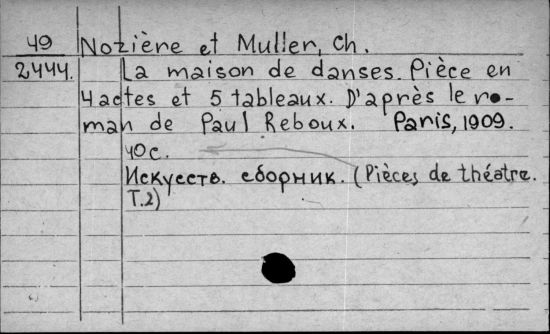 49 Nozière et Muller, Ch.
2444. La maison de danses. Pièce en
4 actes et 5 tableaux. D'après le ro-
man de Paul Reboux. Paris, 1909.
40 c.
Искусств. сборник. (Pièces de théatre.
T.2)